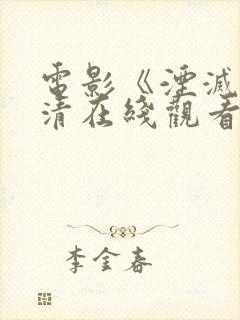 電影《湮滅
清在綫觀看
李金春